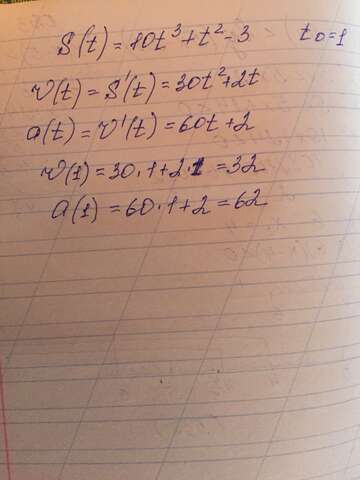 S(t)=10t³+t²-3 t₀=1
v(t)=S'(t)=30t²+2t
a(t)=v'(t)=60t+2
v(1)=30·1+2·1=32
a(1)=60·1+2=62